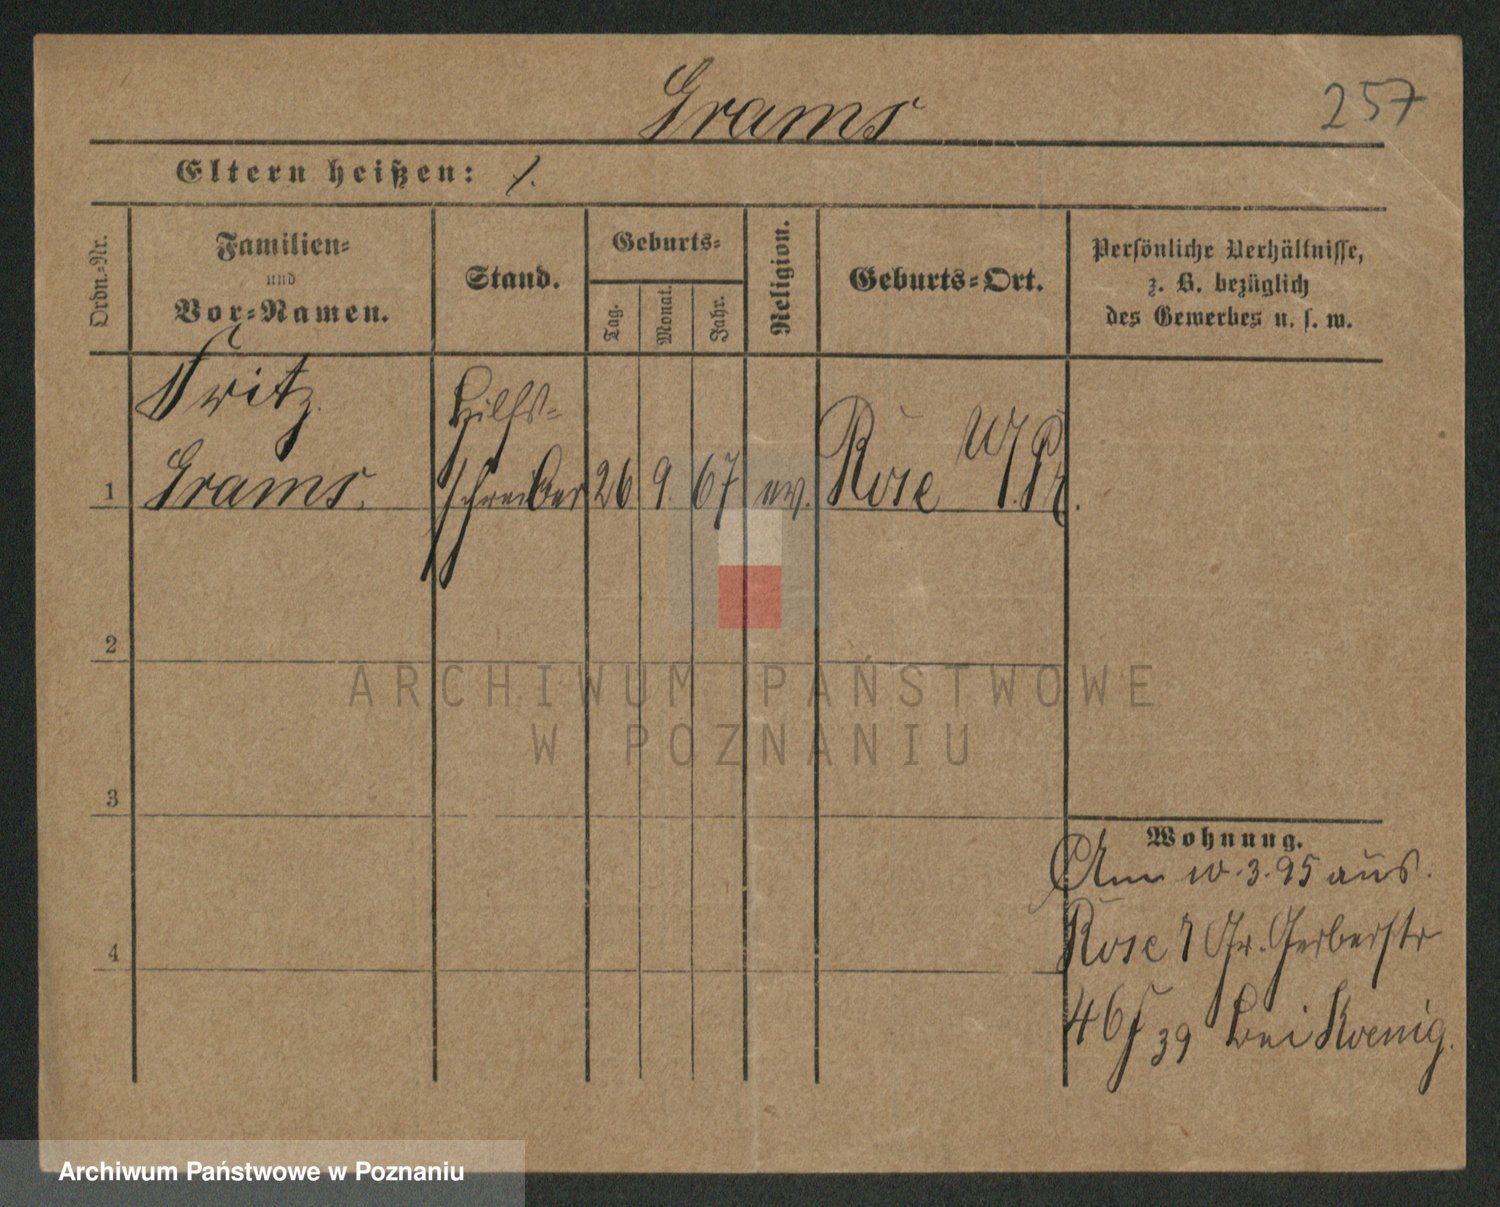 Grams
257
Eltern heißen: /.
Ordn.-Nr.
Familien-
und
Vor-Namen.
Stand.
Geburts-
Tag.
Monat.
Jahr.
Religion.
Geburts-Ort.
Persönliche Verhältnisse,
z. B. bezüglich
des Gewerbes u. s. w.
Fritz
Hilfs-
1 Grams. schreiber 26 9. 67 ev. Rose W/Pr.
2
3
4
Wohnung.
10.3.95 aus
Rose Gr. Gerberstr
46 39 bei Koenig.
ARCHIWUM PAŃSTWOWE
W POZNANIU
Archiwum Państwowe w Poznaniu